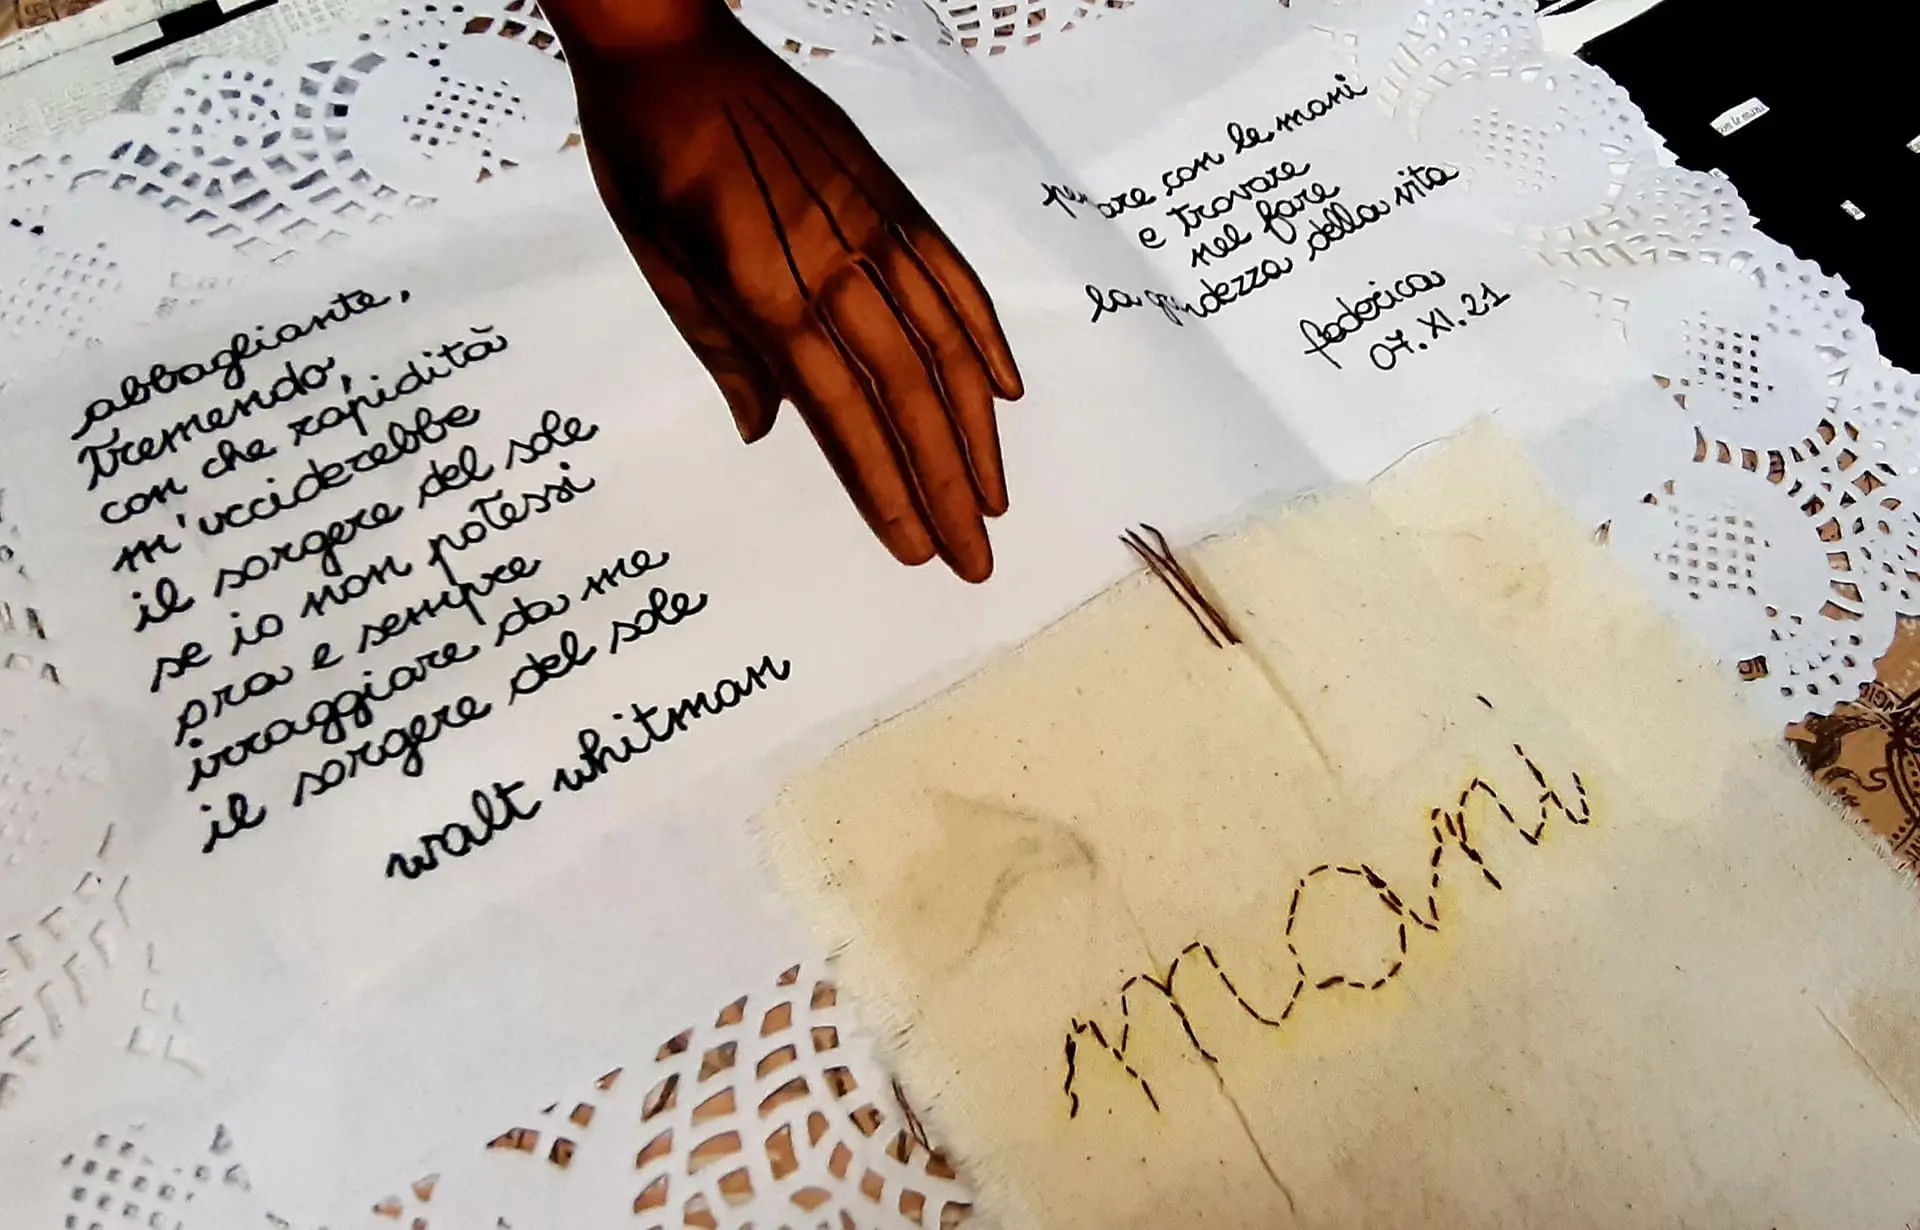 abbagliante,
tremendo,
con che rapidità
m'ucciderebbe
il sorgere del sole
se io non potessi
ora e sempre
irraggiare da me
il sorgere del sole
walt whitman
con le mani
e trovare
nel fare
la grandezza della vita
federica
07.XI.21
mani